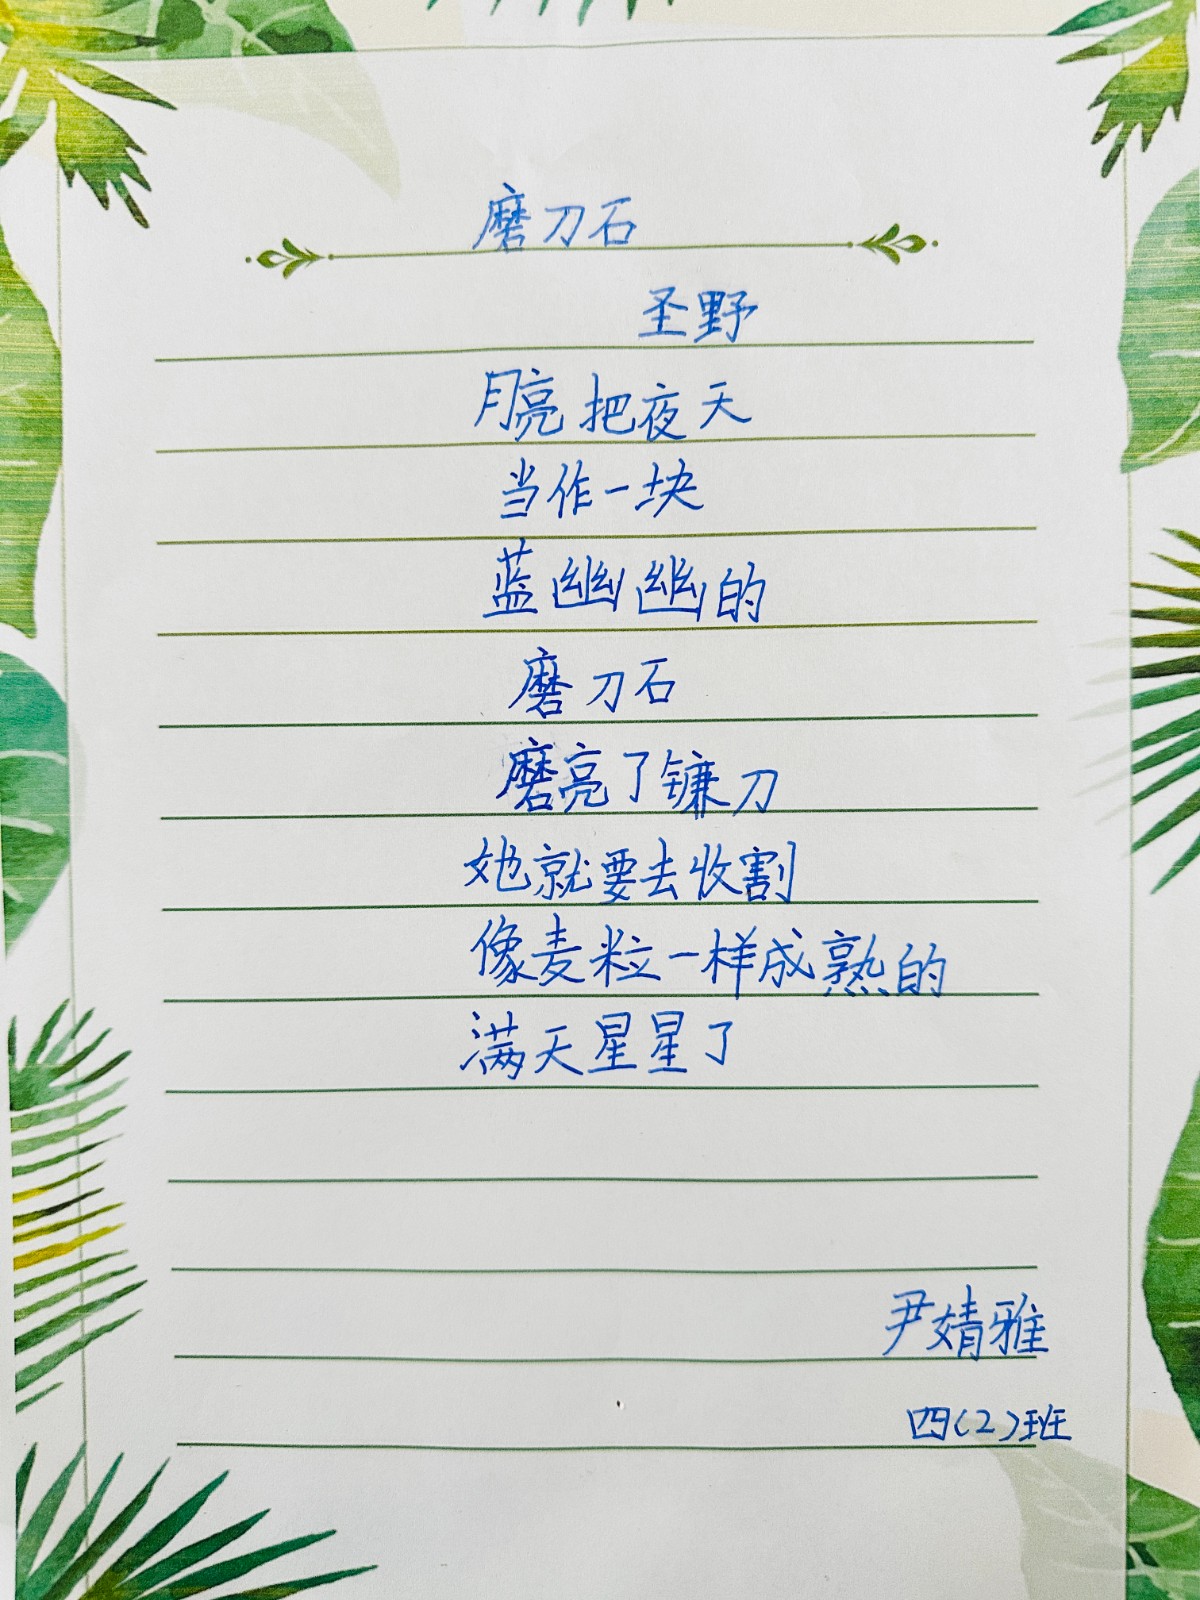 磨刀石
圣野
月亮把夜天
当作一块
蓝幽幽的
磨刀石
磨亮了镰刀
她就要去收割
像麦粒一样成熟的
满天星星了
尹婧雅
四(2)班